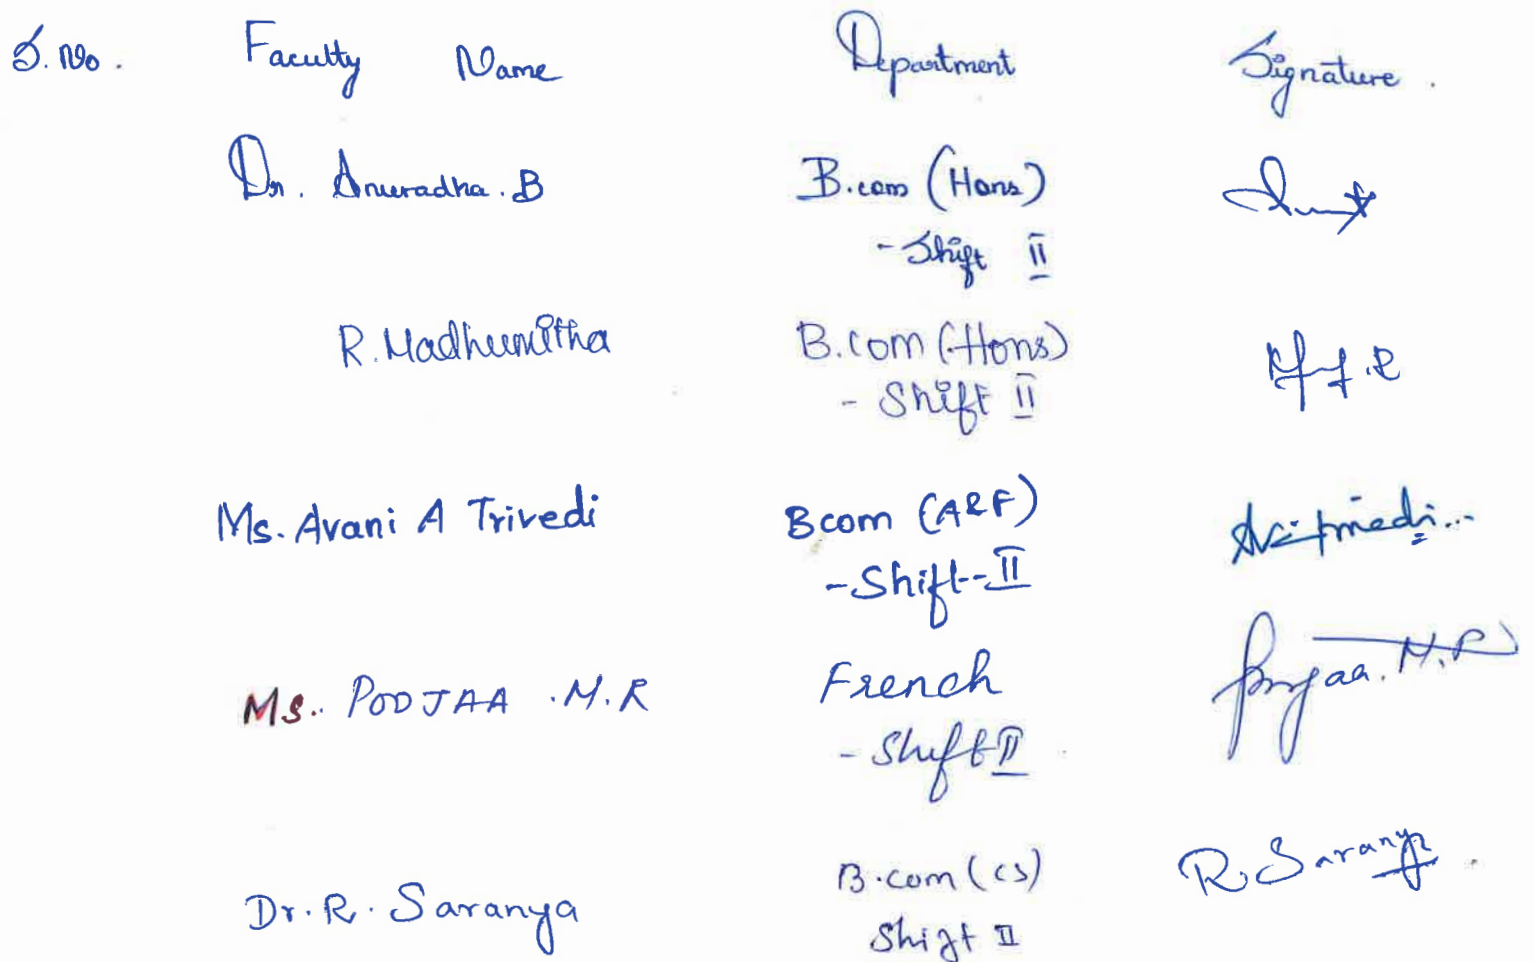 S. No. Faculty Name Department Signature.
Dr. Anuradha. B B.com (Hons)
- Shift II
R. Madhumitha B.Com (Hons)
- Shift II
Ms. Avani A Trivedi Bcom (A&F)
- Shift - II
Ms. POOJAA .M.R French Poojaa. M.R
- Shift II
Dr. R. Saranya B.com (CS) R. Saranya
Shift II